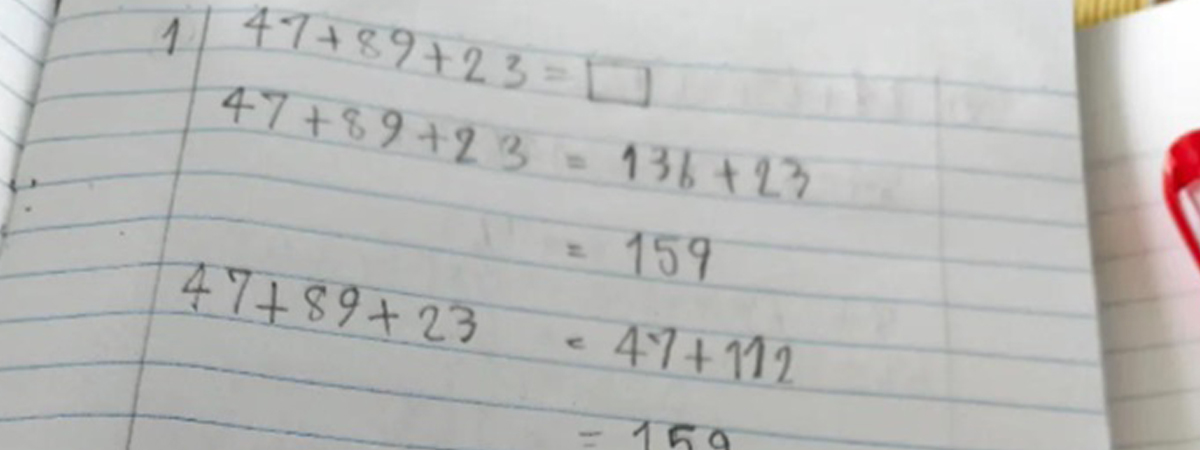 1 47+89+23 = □
47+89+23 = 136+23
= 159
47+89+23 = 47+112
= 159